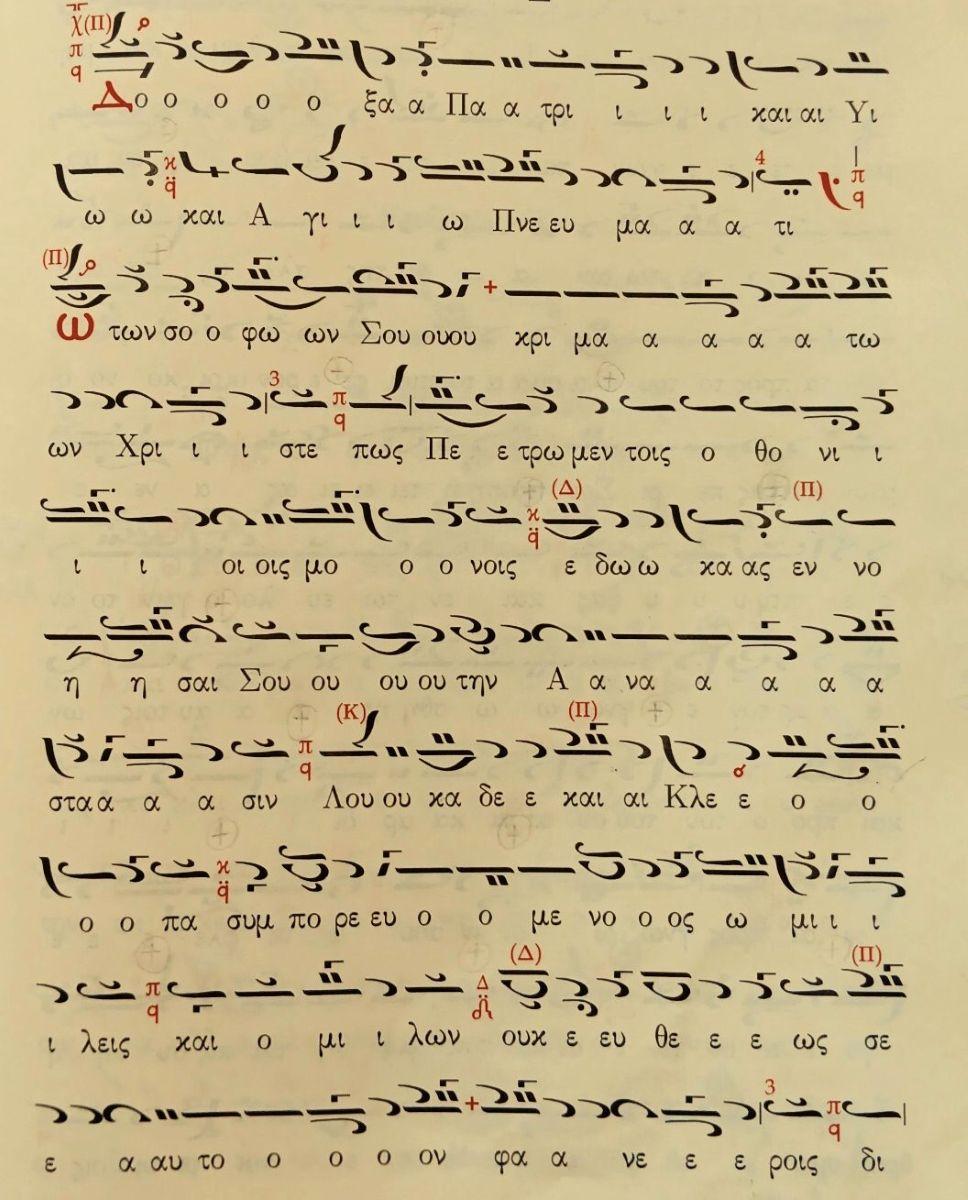 Δο ο ο ο ο ξα α Πα α τρι ι ι ι και αι Υι
ω ω και Α γι ι ι ω Πνε ευ μα α α τι
Ω των σο ο φω ων Σου ουου κρι μα α α α α τω
ων Χρι ι ι στε πως Πε ε τρω μεν τοις ο θο νι ι
ι ι οι οις μο ο ο νοις ε δω ω κα ας εν νο
η η σαι Σου ου ου ου την Α α να α α α α
στα α α α σιν Λου ου κα δε ε και αι Κλε ε ο ο
ο ο πα συμ πο ρε ευ ο ο με νο ο ος ω μι ι ι
ι λεις και ο μι ι λων ουκ ε ευ θε ε ε ως σε
ε α αυ το ο ο ο ον φα α νε ε ε ροις δι